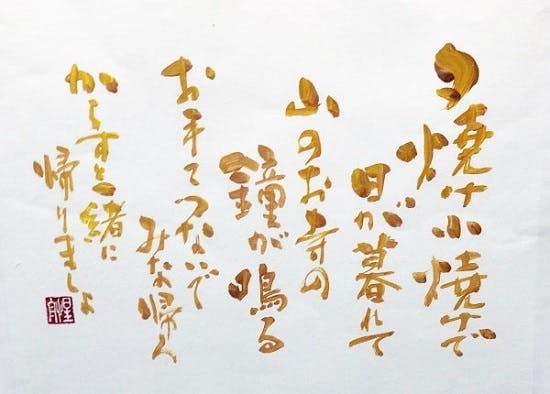 夕焼け小焼けで
日が暮れて
山のお寺の
鐘が鳴る
お手てつないで
みな帰ろ
からすと一緒に
帰りましょ